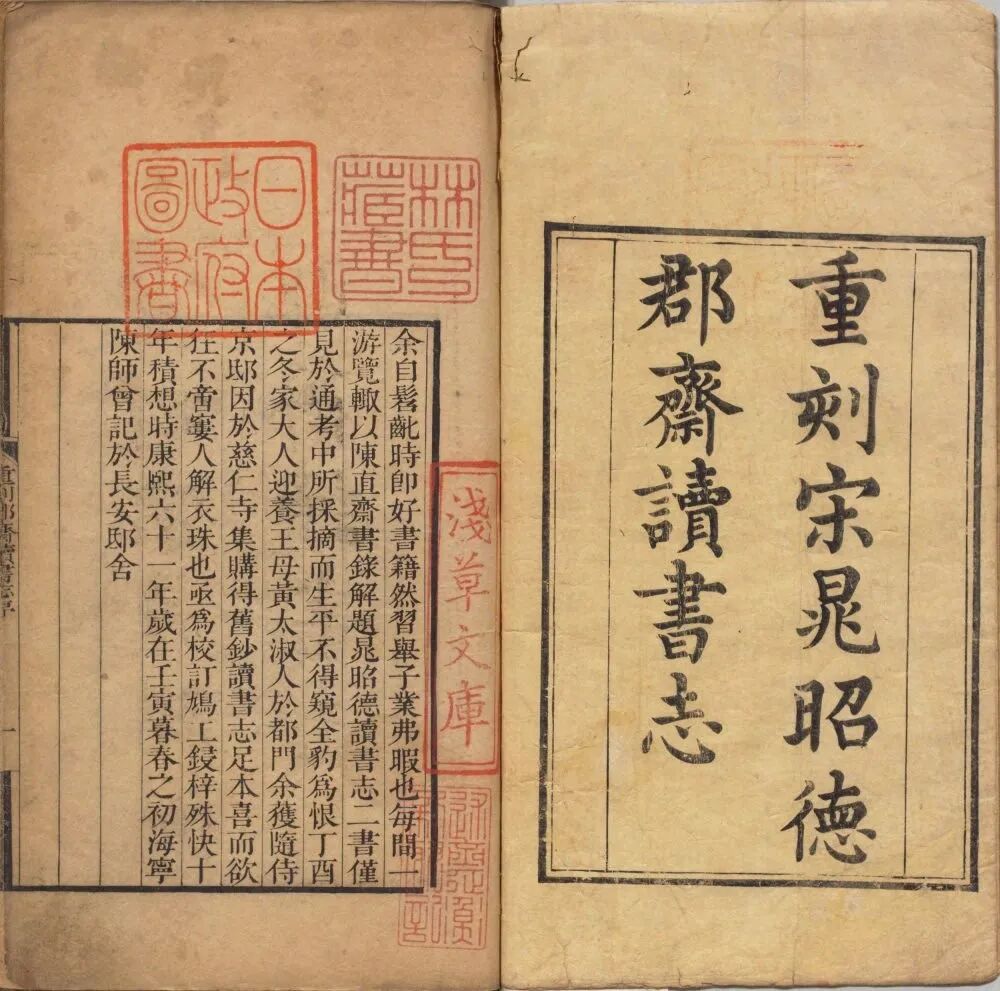 重刻宋晁昭德
郡齋讀書志
日本
政府
圖書
林氏
藏書
淺草文庫
余自髫齔時卽好書籍然習舉子業弗暇也每間一
游覽輙以陳直齋書錄解題晁昭德讀書志二書僅
見於通考中所採摘而生平不得窺全豹爲恨丁酉
之冬家大人迎養王母黃太淑人於都門余獲隨侍
京邸因於慈仁寺集購得舊鈔讀書志足本喜而欲
狂不啻窶人解衣珠也亟爲校訂鳩工鋟梓殊快十
年積想時康熙六十一年歲在壬寅暮春之初海寧
陳師曾記於長安邸舍
重刻郡齋讀書志序
一